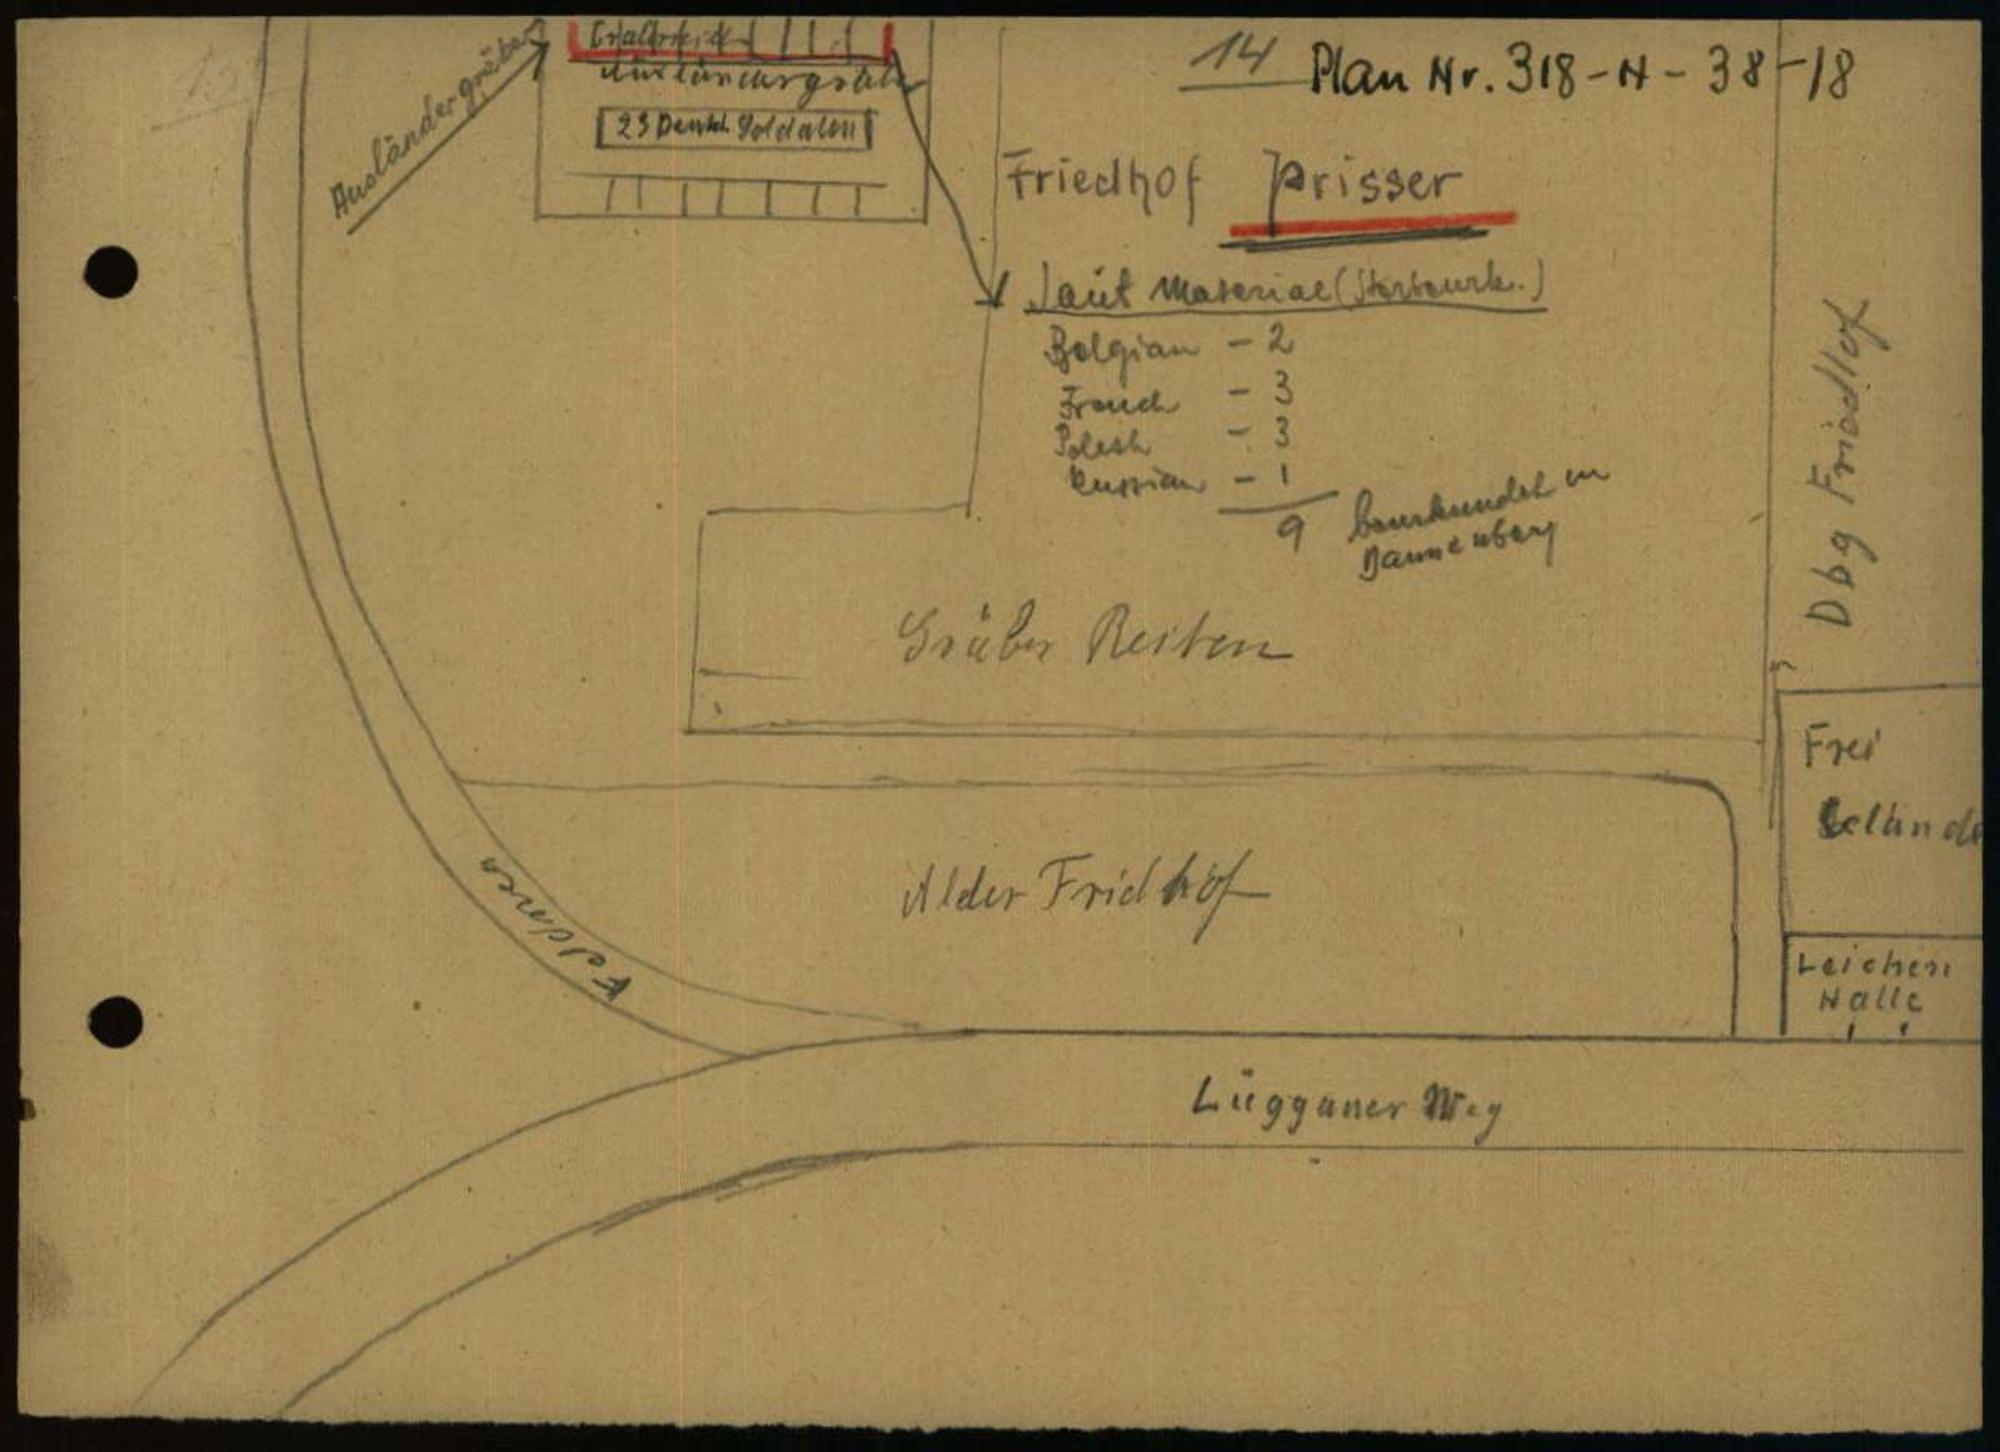 14 Plan Nr. 318-N-38-18
Ausländergräber
Ausländergräber
23 Deutsch. Soldaten
Friedhof Prisser
Laut Material (Sterbeurk.)
Belgian - 2
French - 3
Polish - 3
Russian - 1
9 beurkundet in
Dannenberg
Dbg Friedhof
Gräber Reihen
Frei
Gelände
Alder Fridhof
Leichen
Halle
Lügganer Weg